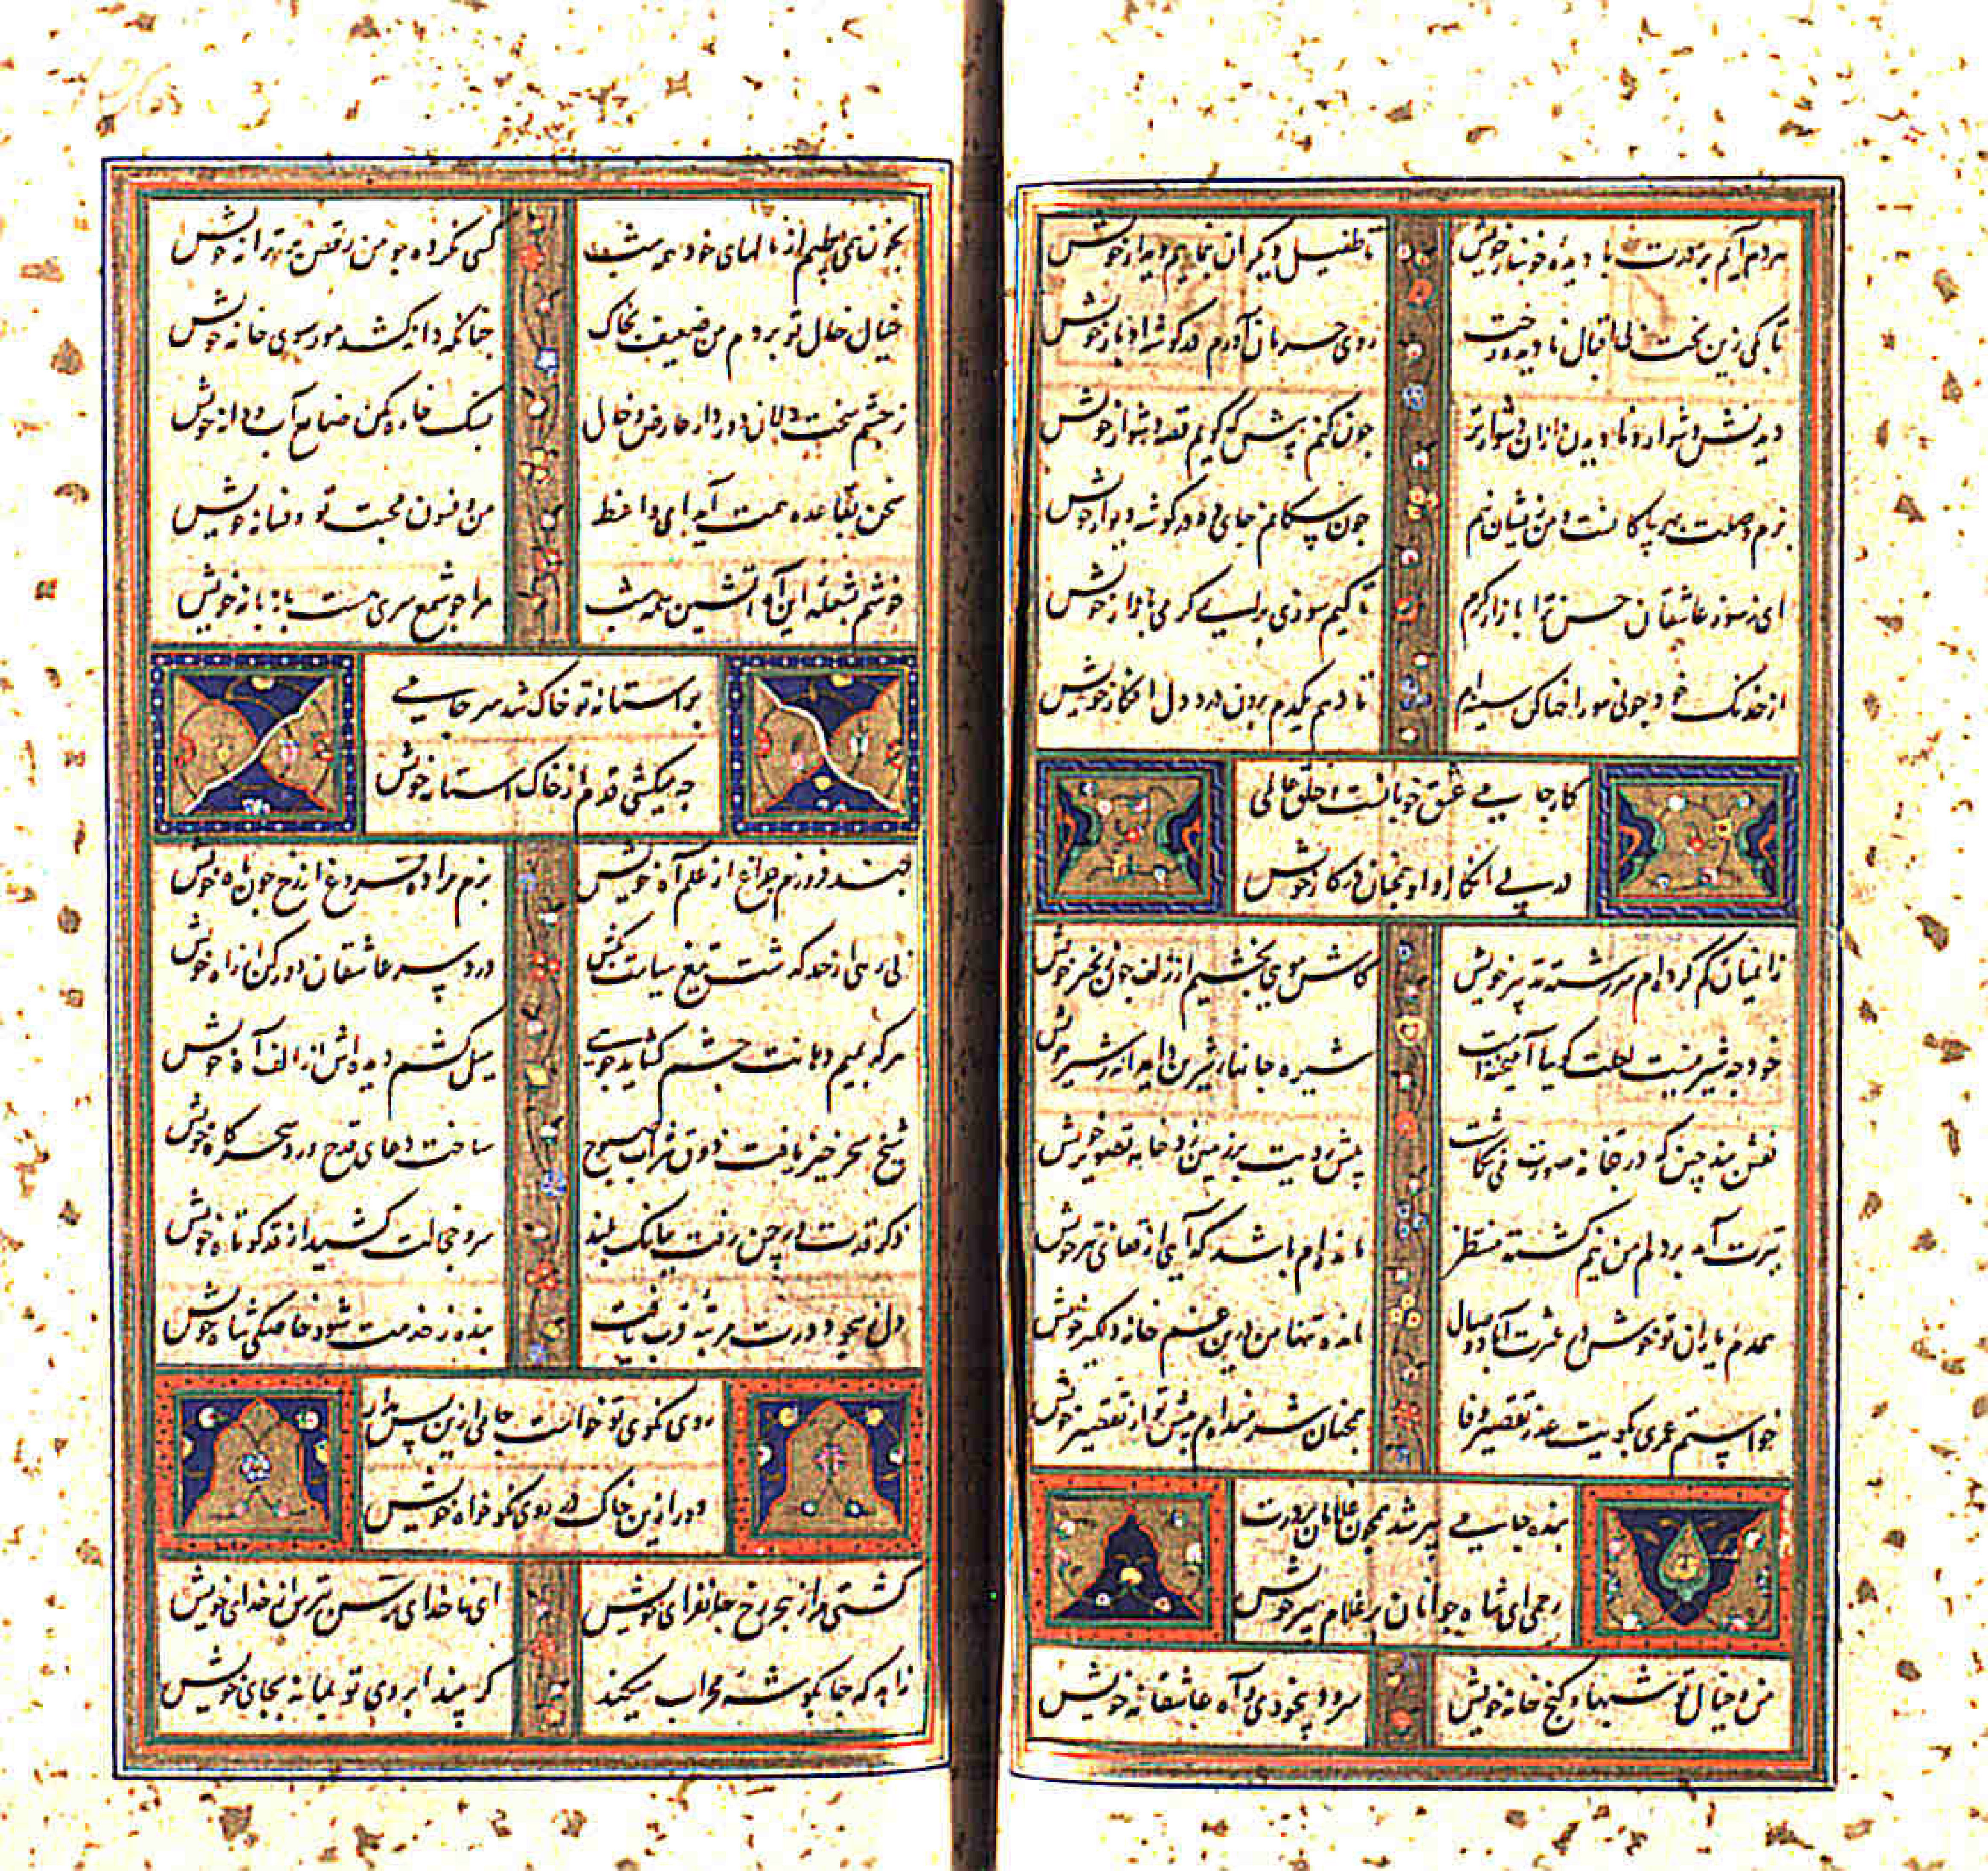 هردم آیم بر درت با دیده خونبار خویش تا طفیل دیگران بنماییم دیدار خویش
تا کی زین بخت بی اقبال نادیده درت روی حرمان آورم در گوشه ادبار خویش
دیدنش دشوار و نادیدن ازان دشوارتر چون کنم پیش که گویم قصه دشوار خویش
بزم وصلت بهر پاکانست و من زیشان نیم چون سگانم جای ده در گوشه دیوار خویش
ای ز سوز عاشقان حسن ترا بازار گرم تا کیم سوزی برای گرمی بازار خویش
از خدنگ خود چو نی سوراخها کن سینه ام تا دهم یکدم برون درد دل افکار خویش
کار جامی عشق خوبانست و خلق عالمی
در پی انکار او او همچنان در کار خویش
زان میان گم کرده ام سررشته تدبیر خویش کاش مویی بخشیم از زلف چون زنجیر خویش
خود چه شیرینست لعلت گوییا آمیختست شیره جانهای شیرین دایه اندر شیر خویش
نقش بند چین که در بتخانه صورت می نگاشت پیش رویت بر زمین زد خامه تصویر خویش
تیرت آمد بر دلم من نیم کشته منتظر مانده ام باشد که آیی از قفای تیر خویش
همدم یاران تو خوش در عشرت آباد وصال مانده تنها من درین غم خانه دلگیر خویش
خواستم عمری بگویت عذر تقصیر وفا همچنان شرمنده ام پیش تو از تقصیر خویش
بنده جامی پیر شد همچون غلامان بر درت
رحمی ای شاه جوانان بر غلام پیر خویش
من و خیال تو شبها و کنج خانه خویش سرود بیخودی و آه عاشقانه خویش
بخون همی طپم از نالهای خود همه شب کسی نکرده چو من رقص بر ترانه خویش
خیال خال تو بردم من ضعیف بخاک چنانکه دانه کشد مور سوی خانه خویش
ز چشم سخت دلان دور دار عارض و خال بسنگ خاره مکن ضایع آب و دانه خویش
سخن بقاعده همت آید ای واعظ من و فسون محبت تو و فسانه خویش
خوشم بشعله این آه آتشین همه شب مرا چو شمع سری هست با زبانه خویش
بر آستانه تو خاک شد سر جامی
چه میکشی قدم از خاک آستانه خویش
چند فروزم چراغ از علم آه خویش بزم مرا ده فروغ از رخ چون ماه خویش
بی ادبی از حد گذشت تیغ سیاست بکش درد سر عاشقان دور کن از راه خویش
هر که بمیم دهانت چشم گشاید چو صاد میل کشم دیده اش از الف آه خویش
شیخ سحر خیز یافت ذوق شراب صبوح ساخت دعای قدح ورد سحرگاه خویش
ذکر قدت در چمن رفت ببانگ بلند سرو خجالت کشید از قد کوتاه خویش
دل بسجود درت مرتبه قرب یافت بنده ز خدمت شود خاصگی شاه خویش
روی نکوی تو خواست جامی ازین پس مدار
دور ازین خاک در روی نکوخواه خویش
کشتی مرا ز هجر رخ جانفزای خویش ای ناخدای ترس بترس از خدای خویش
زاهد که جا بگوشه محراب میکند گر بیند ابروی تو نماند بجای خویش